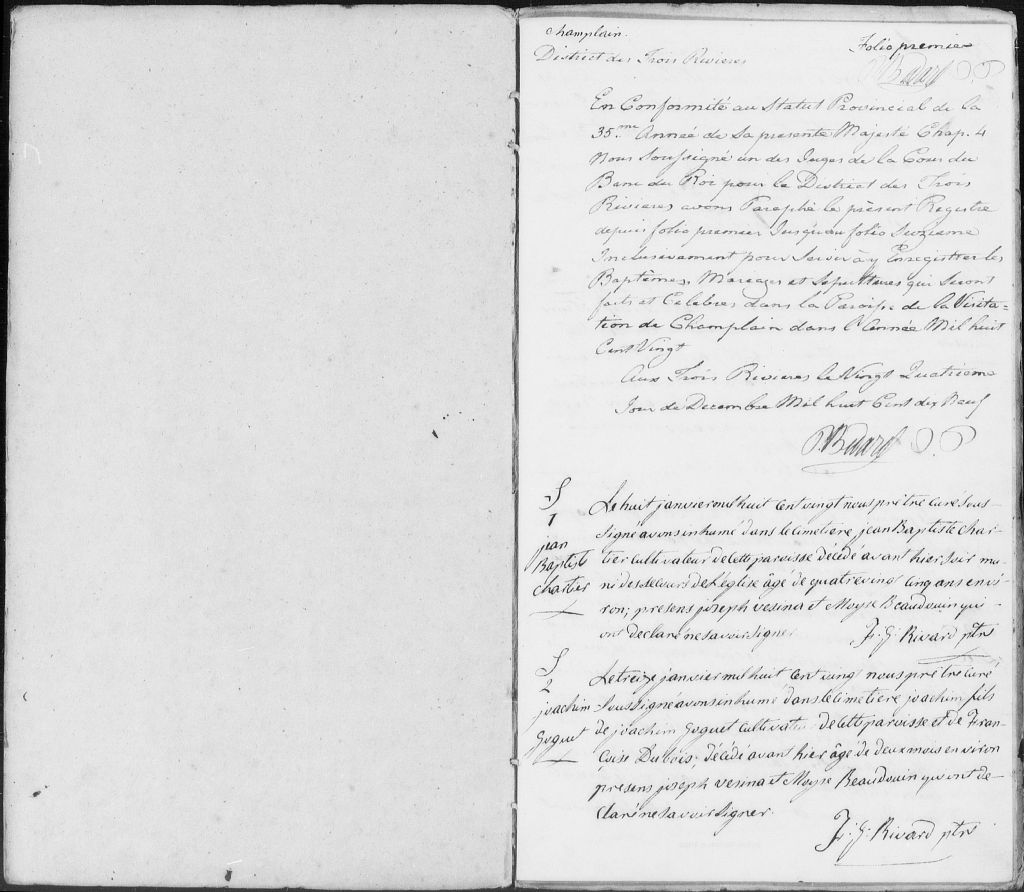 Champlain.
District des Trois Rivieres
Folio premier
P. Bedard J P
En Conformité au Statut Provincial de la
35.me Année de Sa presente Majesté Chap. 4
Nous Soussigné un des Juges de la Cour du
Banc du Roi pour le District des Trois
Rivieres avons Paraphé le présent Registre
depuis folio premier Jusqu'au folio Seizieme
Inclusivement pour Servir à y Enregistrer les
Baptêmes Mariages et Sepultures qui Seront
faits et Celebrés dans la Paroisse de la Visita=
tion de Champlain dans l'Année Mil huit
Cent Vingt
Aux Trois Rivieres le Vingt Quatrieme
Jour de Decembre Mil huit Cent dix Neuf
P. Bedard J. P
S
1
jean
Baptiste
chartier
Le huit janvier mil huit Cent vingt nous prêtre Curé Sous-
Signé avons inhumé dans le Cimetiere jean Baptiste Char-
tier Cultivateur de cette paroisse décédé avant hier Soir mu-
ni des Secours de L'église âgé de quatre vingt Cinq ans envi-
ron; presens joseph vesina et Moyse Beaudouin qui
ont declaré ne Savoir Signer
F. G. Rivard ptre
S
2
joachim
Goguet
Le treize janvier mil huit Cent vingt nous prêtre Curé
Soussigné avons inhumé dans le Cimetiere joachim fils
de joachim Goguet Cultivateur de cette paroisse et de Fran-
çoise Dubois, décédé avant hier âgé de deux mois environ
presens joseph vesina et Moyse Beaudouin qui ont de-
claré ne Savoir Signer.
F. G. Rivard ptre